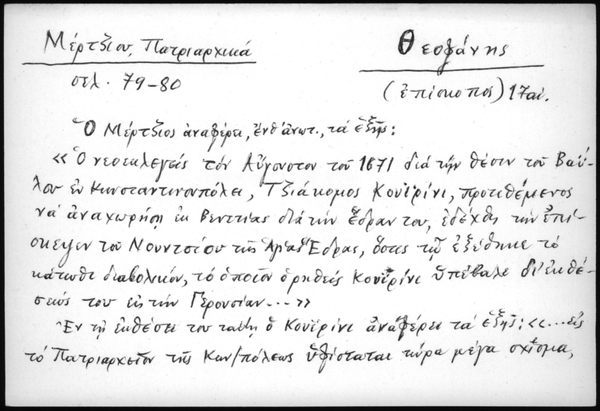 Μέρτζιου, Πατριαρχικά
σελ. 79-80
Θεοφάνης
(ἐπίσκοπος) 17 αἰ.
Ὁ Μέρτζιος ἀναφέρει, ἔνθ' ἀνωτ., τὰ ἑξῆς:
«Ὁ νεοεκλεγεὶς τὸν Αὔγουστον τοῦ 1671 διὰ τὴν θέσιν τοῦ Βαΐ-
λου ἐν Κωνσταντινουπόλει, Τζιάκομος Κουϊρίνι, προτιθέμενος
νὰ ἀναχωρήσῃ ἐκ Βενετίας διὰ τὴν ἕδραν του, ἐδέχθη τὴν ἐπί-
σκεψιν τοῦ Νουντσίου τῆς Ἁγίας Ἕδρας, ὅστις τῷ ἐξέθηκε τὸ
κάτωθι διαβολικόν, τὸ ὁποῖον ὁ ρηθεὶς Κουϊρίνι ὑπέβαλε δι' ἐκθέ-
σεώς του εἰς τὴν Γερουσίαν...»
Ἐν τῇ ἐκθέσει του ταύτῃ ὁ Κουϊρίνι ἀναφέρει τὰ ἑξῆς: «...εἰς
τὸ Πατριαρχεῖον τῆς Κων/πόλεως ὑφίσταται τώρα μέγα σχῖσμα,